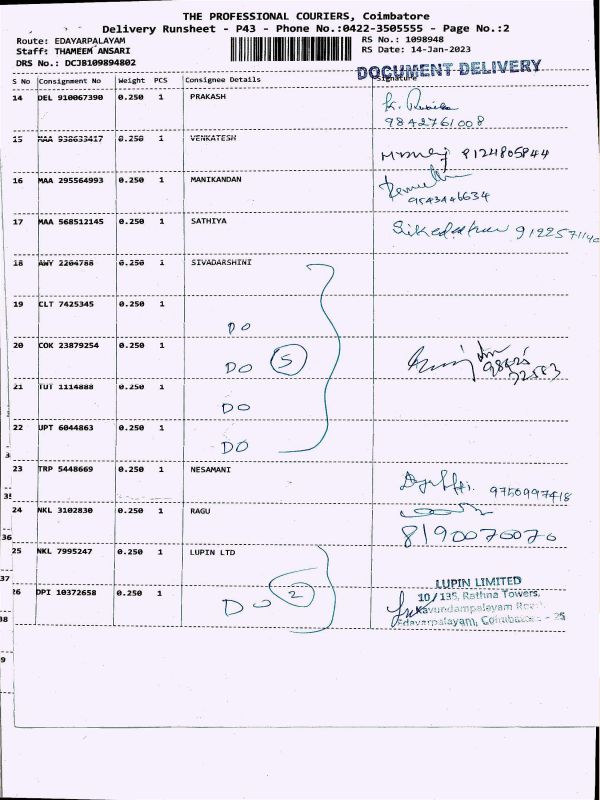 THE PROFESSIONAL COURIERS, Coimbatore
Delivery Runsheet - P43 - Phone No.:0422-3505555 - Page No.:2
Route: EDAYARPALAYAM RS No.: 1098948
Staff: THAMEEM ANSARI RS Date: 14-Jan-2023
DRS No.: DCJB109894802
DOCUMENT DELIVERY
S No Consignment No Weight PCS Consignee Details Signature
14 DEL 910067390 0.250 1 PRAKASH
9842761008
15 MAA 938633417 0.250 1 VENKATESH
8124805844
16 MAA 295564993 0.250 1 MANIKANDAN
9543446634
17 MAA 568512145 0.250 1 SATHIYA
18 AWY 2204788 0.250 1 SIVADARSHINI
19 CLT 7425345 0.250 1
DO
20 COK 23879254 0.250 1
DO 5
21 TUT 1114888 0.250 1
DO
22 UPT 6044863 0.250 1
DO
23 TRP 5448669 0.250 1 NESAMANI
9750997418
24 NKL 3102830 0.250 1 RAGU
8190070070
25 NKL 7995247 0.250 1 LUPIN LTD
26 DPI 10372658 0.250 1
DO 2
LUPIN LIMITED
10/135, Rathna Towers,
Kavundampalayam Road,
Edayarpalayam, Coimbatore - 25
36
37